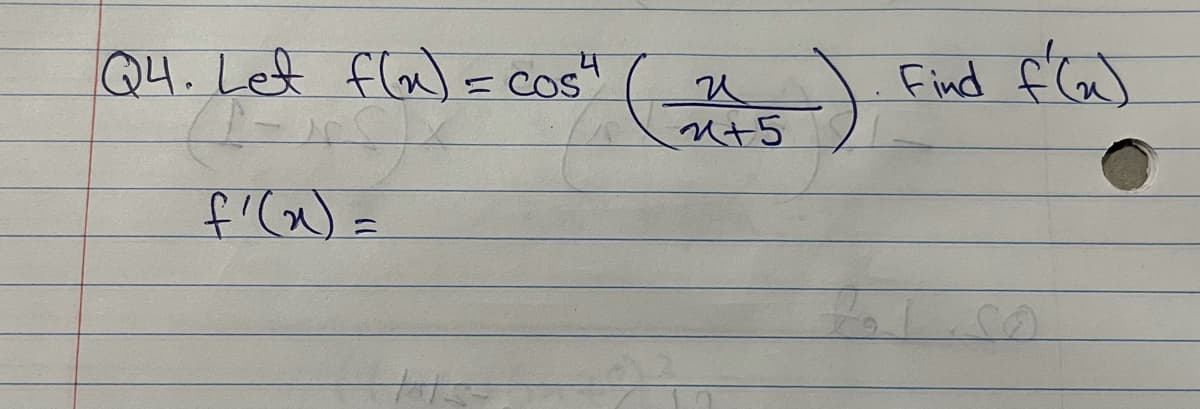 Q4. Let f(x) = cos⁴ (x / x+5). Find f'(x)
f'(x) =